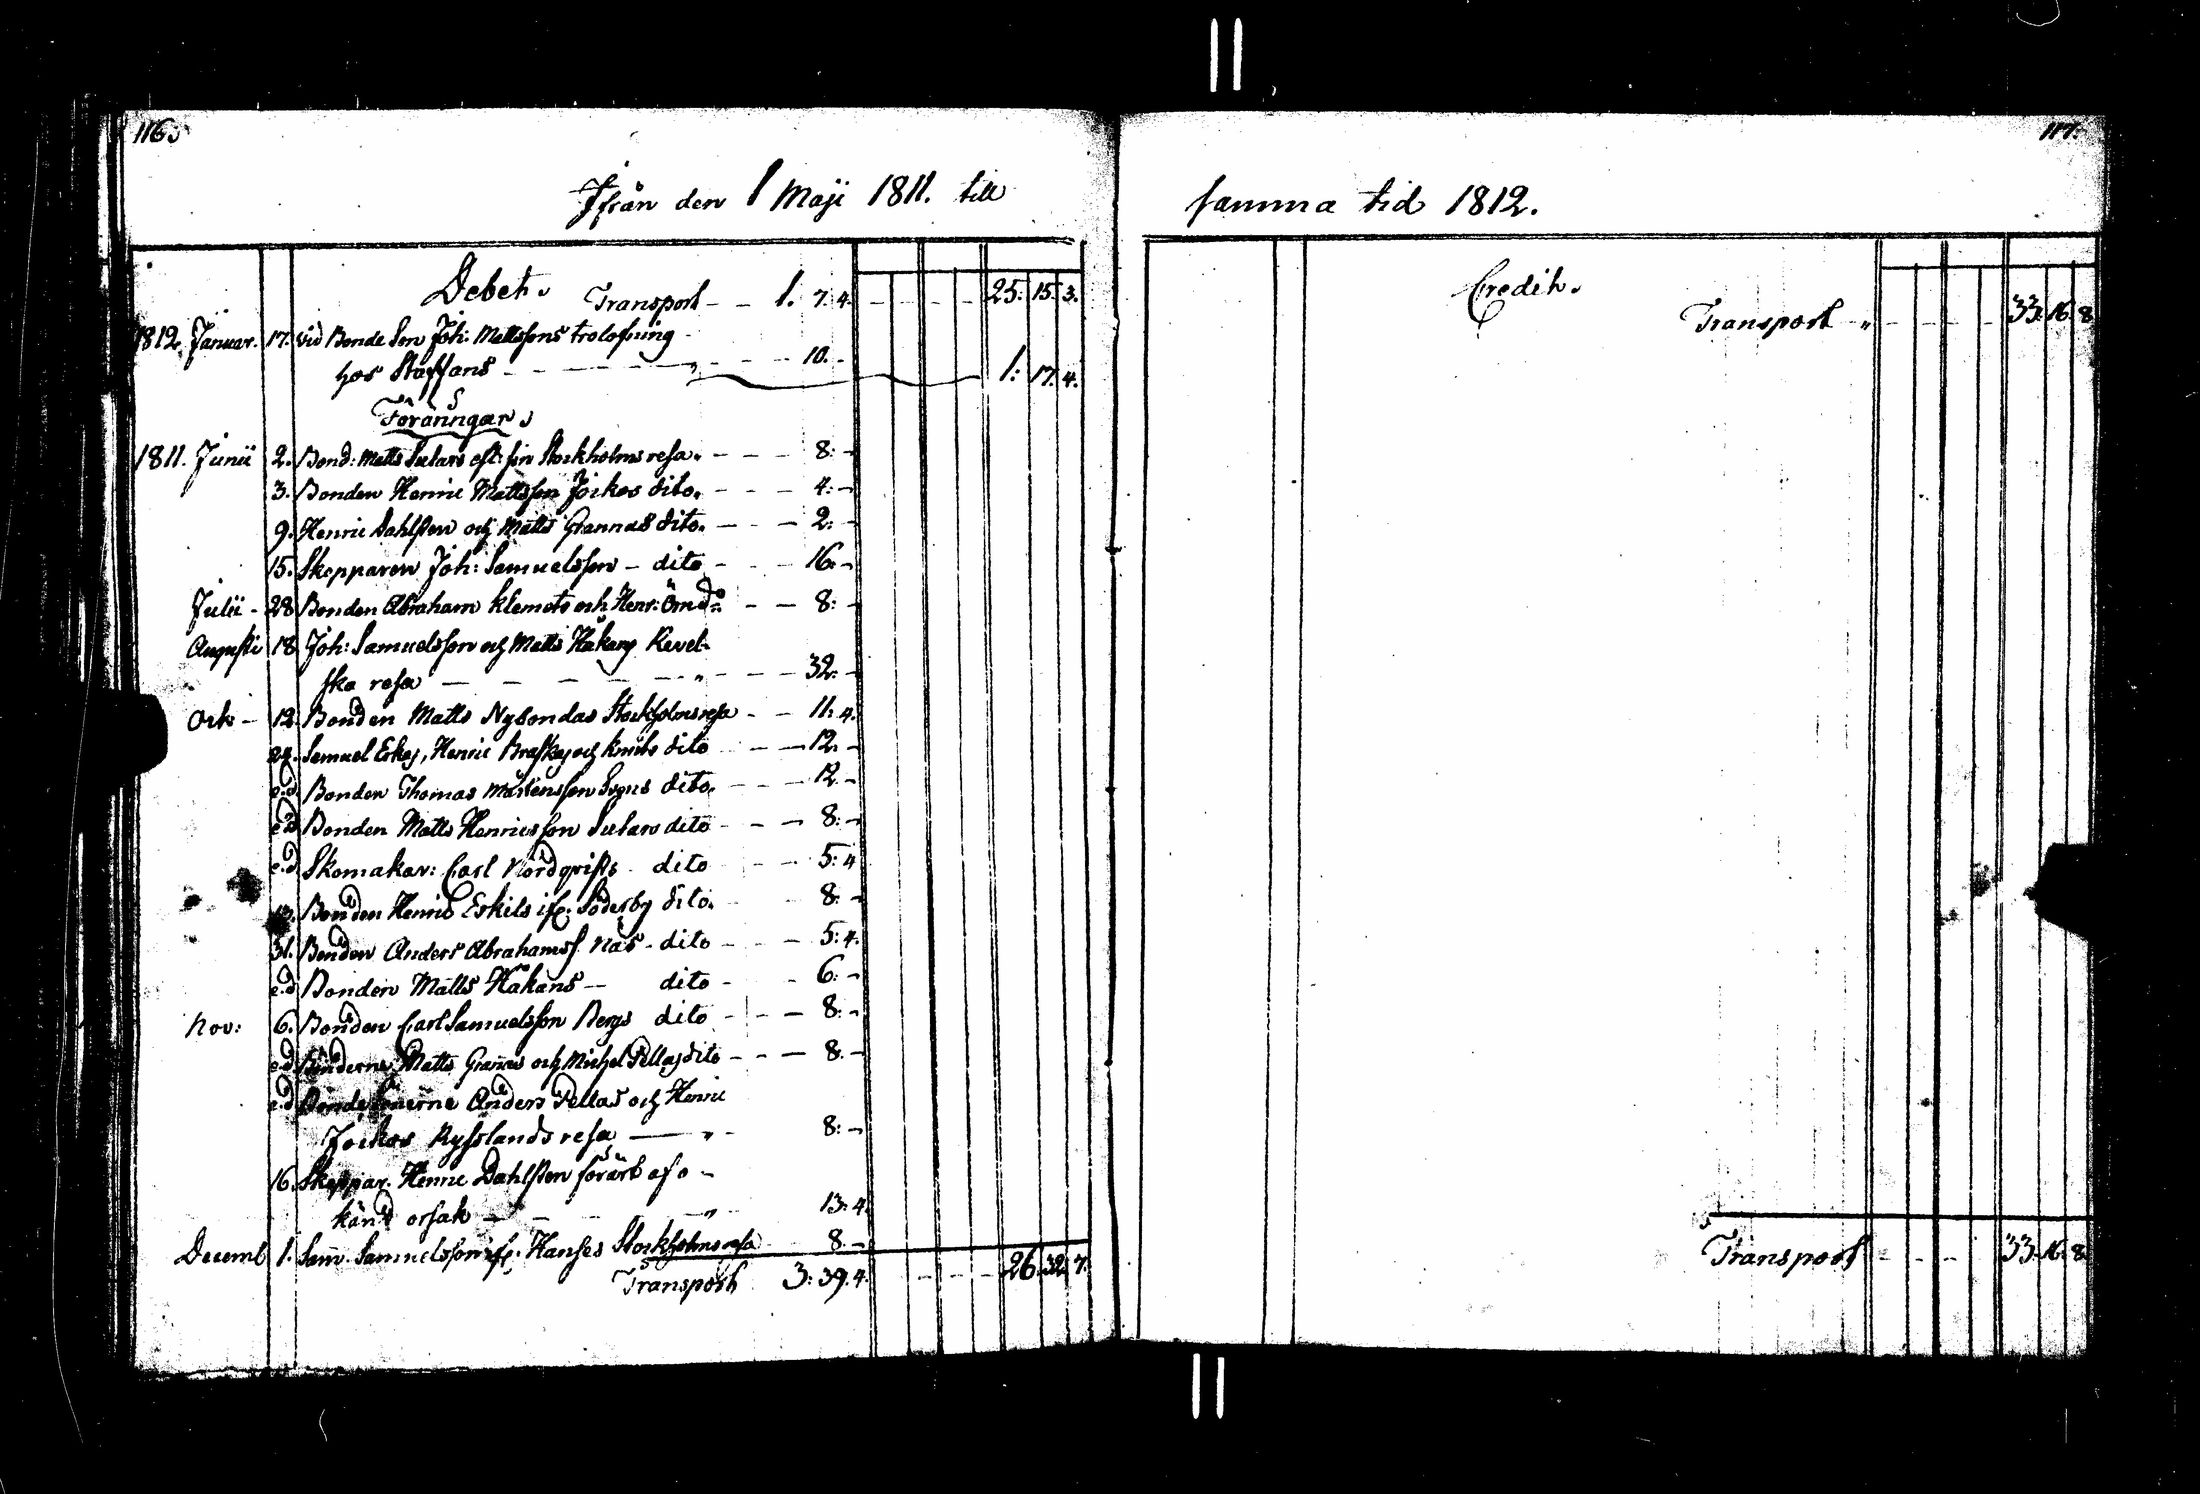 116.
Ifrån den 1 Maji 1811. till
Debet. Transport - - 1. 7. 4. - - - - 25. 15. 3.
1812. Januar. 17. vid Bonde Son Joh: Mattssons trolofning
hos Staffans - - - - 10. - 1: 17. 4.
Föräringar.
1811. Junii 2. Bond: Matts Sutars eft: sin Stockholms resa. - - - 8: -
3. Bonden Henric Mattsson Joikas dito. - - - 4: -
9. Henric Dahlsten och Matts Grannas dito. - - - 2: -
15. Skepparen Joh: Samuelsson - dito - - - 16. -
Julii - 28 Bonden Abraham Klemets och Henr: Öm do - - 8: -
Augusti 18 Joh: Samuelsson och Matts Håkans Revel-
ska resa - - - - - - - 32. -
Octr - 12. Bonden Matts Nybondas Stockholms resa - - 11. 4.
24. Samuel Erkes, Henric Braskas och Knuts dito - - 12. -
e.d. Bonden Thomas Mårtensson dito. - - - 12. -
e.d. Bonden Matts Henricsson Sutars dito - - - 8: -
e.d. Skomakar: Carl Nordqvists dito - - 5: 4
Bonden Henric Eskils if: Söderby dito. - - 8: -
31. Bonden Anders Abrahamss. Näs - dito - - - 5: 4.
e.d. Bonden Matts Håkans - dito - - 6: -
Nov: 6. Bonden Carl Samuelsson Bergs dito - - - 8: -
e.d. Bönderne Matts Grannas och Michel Pellas dito - - - 8. -
e.d. Bonde Sönerne Anders Pellas och Henric
Joikas Rysslands resa - - 8: -
16. Skeppar. Henric Dahlsten förärt af o -
känd orsak - - - - 13: 4.
Decemb 1. Sam. Samuelsson if. Hanses Stockholms resa 8. -
Transport 3: 39. 4. - - - - 26. 32. 7.
117.
samma tid 1812.
Credit.
Transport - - - - 33. 16. 8
Transport - - - - 33. 16. 8